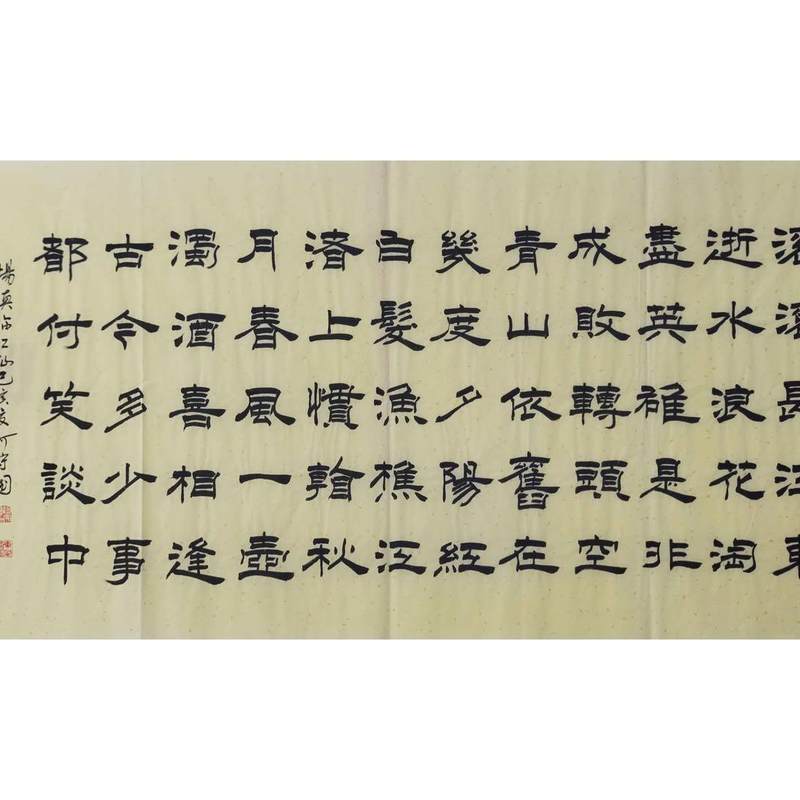 滾滾長江東
逝水浪花淘
盡英雄是非
成敗轉頭空
青山依舊在
幾度夕陽紅
白髮漁樵江
渚上慣看秋
月春風一壺
濁酒喜相逢
古今多少事
都付笑談中
江仙己亥夏